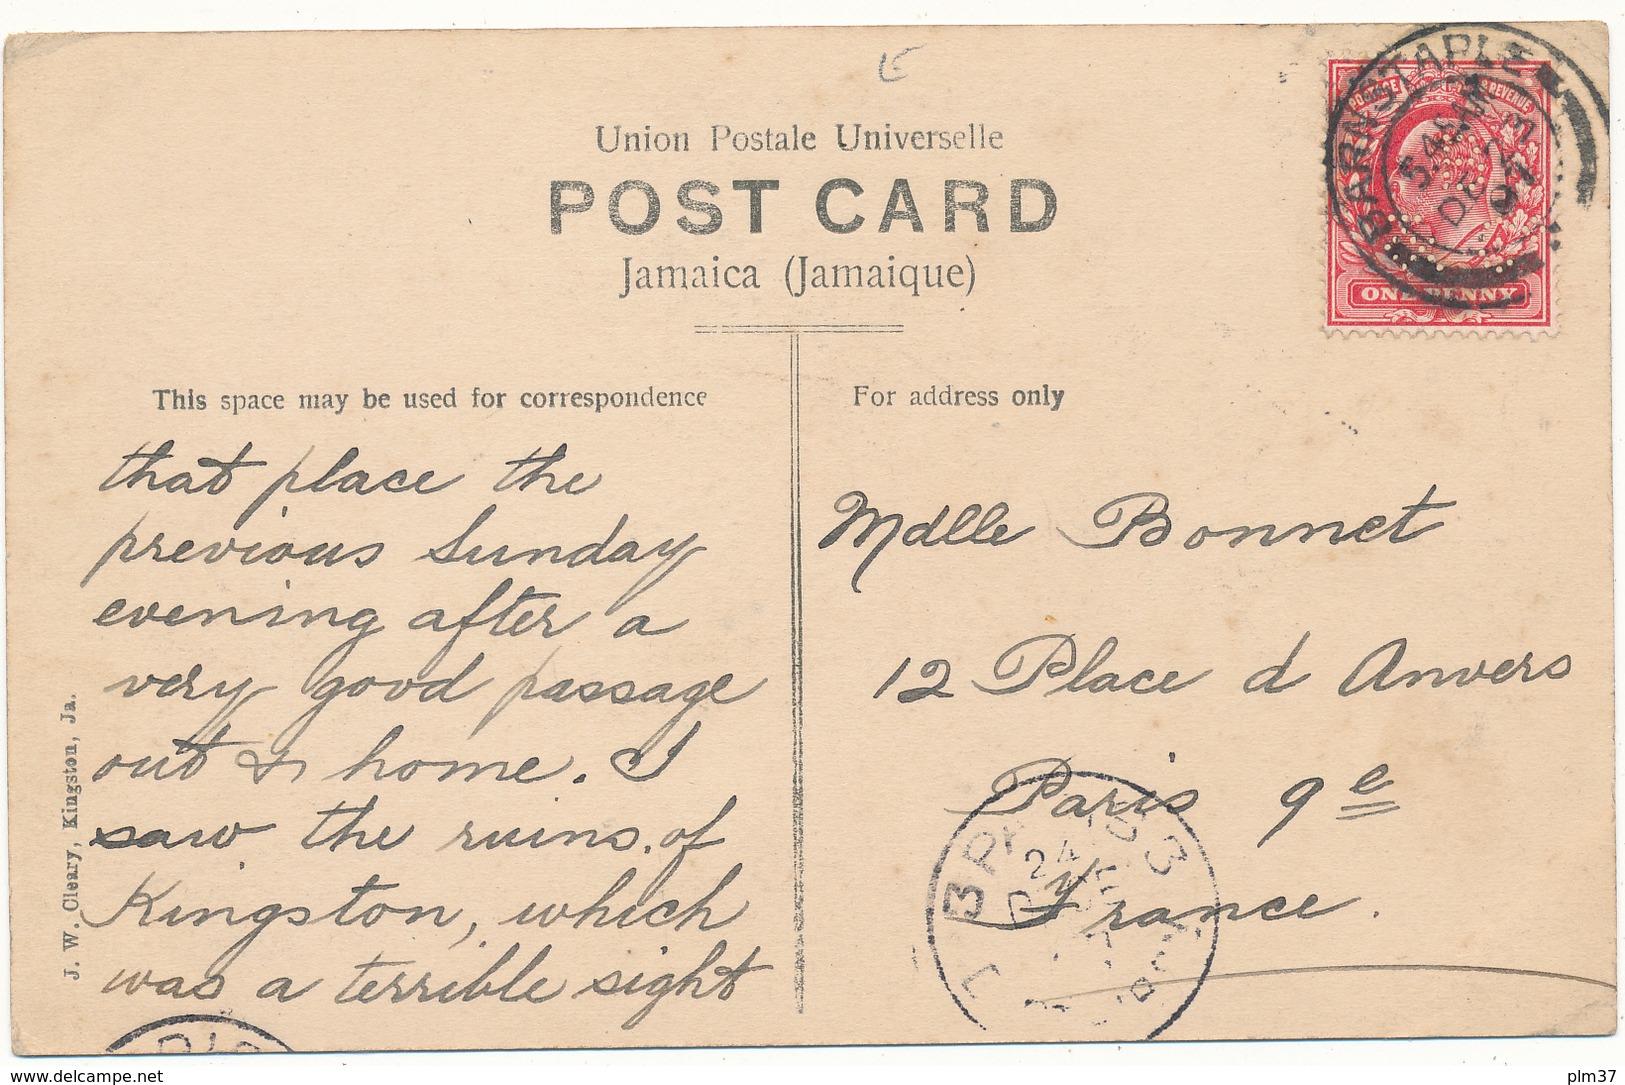 Union Postale Universelle
POST CARD
Jamaica (Jamaique)
This space may be used for correspondence
For address only
that place the
previous Sunday
evening after a
very good passage
out & home. I
saw the ruins of
Kingston, which
was a terrible sight
Mdlle Bonnet
12 Place d Anvers
Paris 9e
France.
J. W. Cleary, Kingston, Ja.
POSTAGE REVENUE
ONE PENNY
BARNSTAPLE
DE 2
07
24
www.delcampe.net
plm37